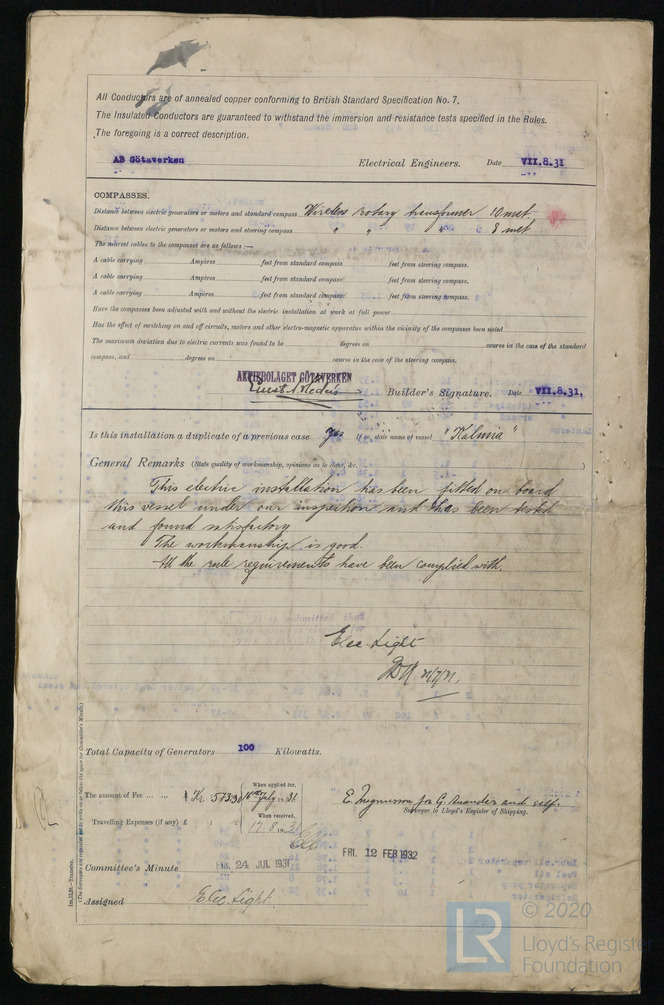 All Conductors are of annealed copper conforming to British Standard Specification No. 7.
The Insulated Conductors are guaranteed to withstand the immersion and resistance tests specified in the Rules.
The foregoing is a correct description.
AB Götaverken Electrical Engineers. Date VII.8.31
COMPASSES.
Distance between electric generators or motors and standard compass Wireless rotary transformer 10 met.
Distance between electric generators or motors and steering compass " " " 8 met.
The nearest cables to the compasses are as follows :—
A cable carrying Ampères feet from standard compass feet from steering compass.
A cable carrying Ampères feet from standard compass feet from steering compass.
A cable carrying Ampères feet from standard compass feet from steering compass.
Have the compasses been adjusted with and without the electric installation at work at full power
Has the effect of switching on and off circuits, motors and other electro-magnetic apparatus within the vicinity of the compasses been noted
The maximum deviation due to electric currents was found to be degrees on course in the case of the standard
compass, and degrees on course in the case of the steering compass.
AKTIEBOLAGET GÖTAVERKEN
Builder's Signature. Date VII.8.31.
Is this installation a duplicate of a previous case Yes If so, state name of vessel "Kalmia"
General Remarks (State quality of workmanship, opinions as to class, &c.
This electric installation has been fitted on board
this vessel under our inspection and has been tested
and found satisfactory
The workmanship is good.
All the rule requirements have been complied with.
It is submitted that
Elec. Light
Total Capacity of Generators 100 Kilowatts.
The amount of Fee Kr. 573.30
When applied for, 16th July 1931
Travelling Expenses (if any) £ : :
When received,
17 8 19
E. Magnusson for G. and self.
Surveyor to Lloyd's Register of Shipping.
FRI. 12 FEB 1932
Committee's Minute 24 JUL 1931
Assigned Elec. Light.
© 2020
LR
Lloyd's Register
Foundation